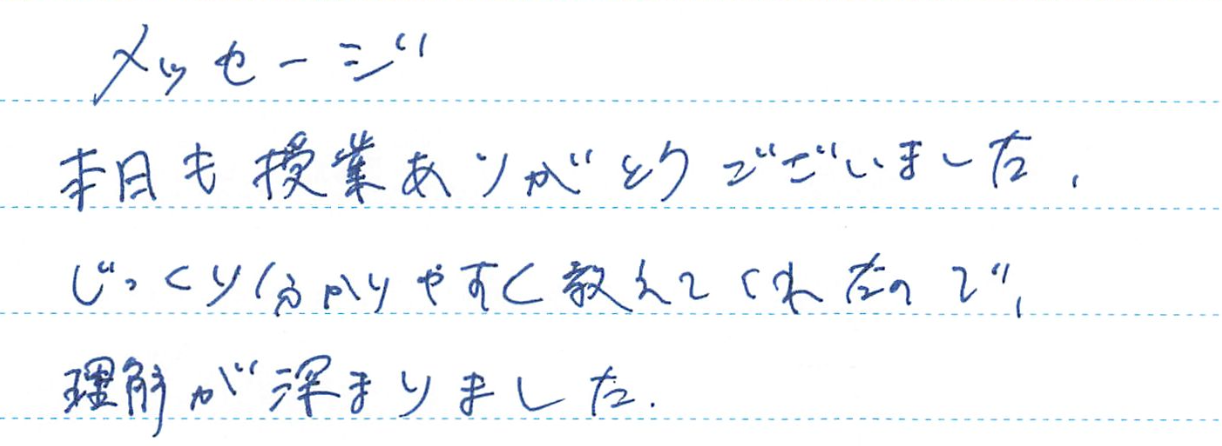 メッセージ
本日も授業ありがとうございました.
じっくり分かりやすく教えてくれたので,
理解が深まりました.